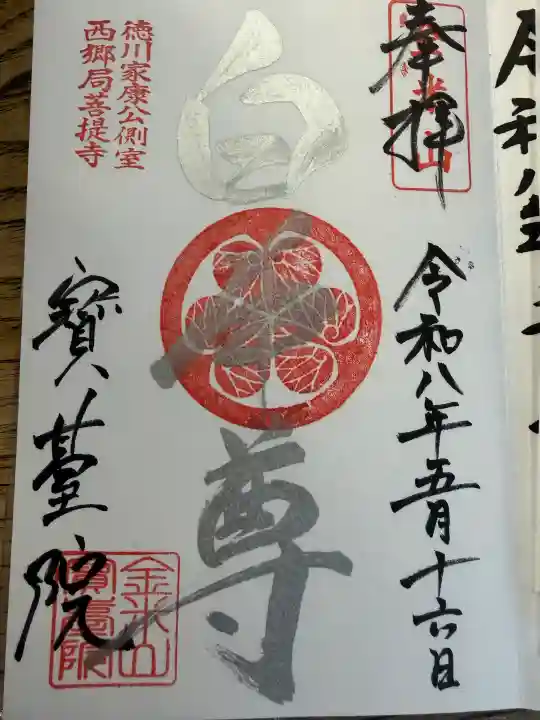 奉拝
令和八年五月十六日
白本尊
徳川家康公側室
西郷局菩提寺
寶䑓院
金米山
寶臺院